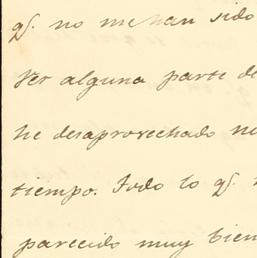 qᵉ. no me han sido
ver alguna parte de
he desaprovechado
tiempo. Todo lo qᵉ.
parecido muy bien